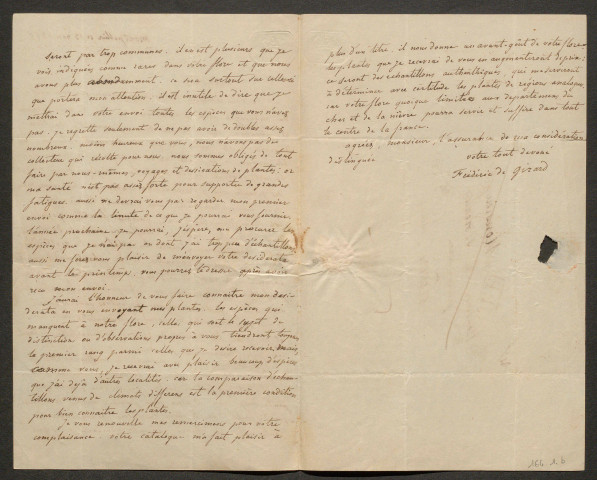 seront par trop communes. il en est plusieurs que je
vois indiquées comme rares dans votre flore et que nous
avons plus abondamment. ce sera surtout sur celles-là
que portera mon attention. il est inutile de dire que je
mettrai dans votre envoi toutes les espèces que vous n'avez
pas. je regrette seulement de ne pas avoir de doubles assez
nombreux. moins heureux que vous, nous n'avons pas de
collecteur qui récolte pour nous. nous sommes obligés de tout
faire par nous-mêmes, voyages et dessication de plantes: or
ma santé n'est pas assez forte pour supporter de grandes
fatigues. aussi ne devrez vous pas regarder mon premier
envoi comme la limite de ce que je pourrai vous fournir.
l'année prochaine je pourrai, j'espère, me procurer les
espèces que je n'ai pas ou dont j'ai trop peu d'échantillons
aussi me ferez vous plaisir de m'envoyer votre desiderata
avant le printemps. vous pourrez le dresser après avoir
reçu mon envoi.
J'aurai l'honneur de vous faire connaître mon desi-
derata en vous envoyant mes plantes. les espèces qui
manquent à notre flore, celles qui sont le sujet de
distinction ou d'observations propres à vous tiendront toujours
le premier rang parmi celles que je désire recevoir. mais,
comme vous, je recevrai avec plaisir beaucoup d'espèces
que j'ai déjà d'autres localités. car la comparaison d'échan-
tillons venus de climats différens est la première condition
pour bien connaître les plantes.
Je vous renouvelle mes remerciemens pour votre
complaisance. votre catalogue m'a fait plaisir à
plus d'un titre. il nous donne un avant-goût de votre flore
les plantes que je recevrai de vous en augmenteront le prix:
ce seront des échantillons authentiques, qui me serviront
à déterminer avec certitude les plantes de régions analogues,
car votre flore quoique limitée aux départemens du
cher et de la nièvre pourra servir et suffire dans tout
le centre de la france.
agréez, monsieur, l'assurance de ma considération
distinguée
votre tout dévoué
Frédéric de Girard
166 1.b